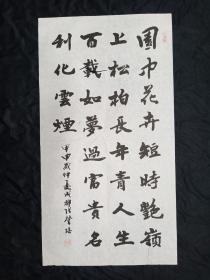 園中花卉短時艷嶺
上松柏長年青人生
百載如夢過富貴名
利化雲煙
甲申歲仲夏